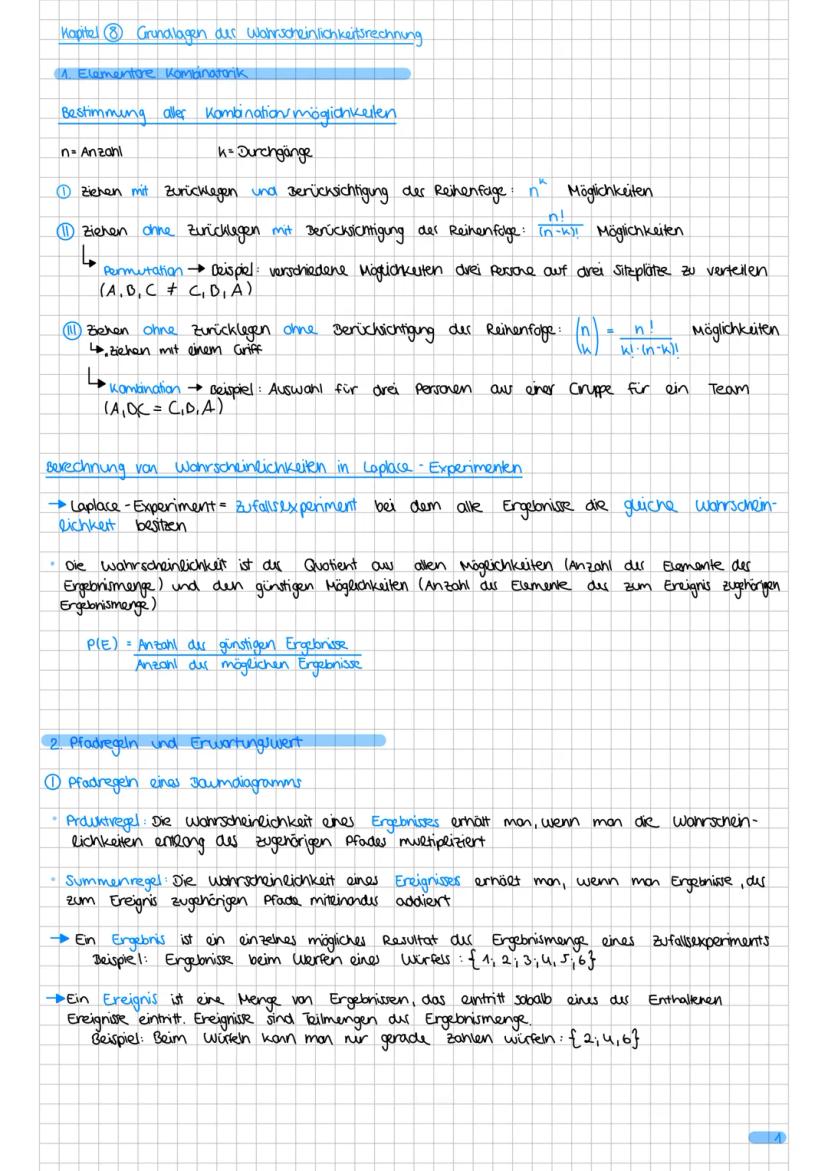 Kapitel ⑧ Grundlagen der Wahrscheinlichkeitsrechnung
1. Elementare Kombinatorik
Bestimmung aller Kombinationsmöglichkeiten
n = Anzahl k = Durchgänge
Ⅰ Ziehen mit Zurücklegen und Berücksichtigung der Reihenfolge: n^k Möglichkeiten
Ⅱ Ziehen ohne Zurücklegen mit Berücksichtigung der Reihenfolge: n!/(n-k)! Möglichkeiten
↳ Permutation → Beispiel: verschiedene Möglichkeiten drei Persone auf drei Sitzplätze zu verteilen
(A,B,C ≠ C,B,A)
Ⅲ Ziehen ohne Zurücklegen ohne Berücksichtigung der Reihenfolge: (n k) = n!/(k!·(n-k)!) Möglichkeiten
↳ Ziehen mit einem Griff
↳ Kombination → Beispiel: Auswahl für drei Personen aus einer Gruppe für ein Team
(A,BC = C,B,A)
Berechnung von Wahrscheinlichkeiten in Laplace-Experimenten
→ Laplace-Experiment = Zufallsexperiment bei dem alle Ergebnisse die gleiche Wahrschein-
lichkeit besitzen
• Die Wahrscheinlichkeit ist der Quotient aus allen Möglichkeiten (Anzahl der Elemente der
Ergebnismenge) und den günstigen Möglichkeiten (Anzahl der Elemente der zum Ereignis zugehörigen
Ergebnismenge)
P(E) = Anzahl der günstigen Ergebnisse
Anzahl der möglichen Ergebnisse
2. Pfadregeln und Erwartungswert
① Pfadregeln eines Baumdiagramms
• Produktregel: Die Wahrscheinlichkeit eines Ergebnisses erhält man, wenn man die Wahrschein-
lichkeiten entlang des zugehörigen Pfades multipliziert
• Summenregel: Die Wahrscheinlichkeit eines Ereignisses erhält man, wenn man Ergebnisse, der
zum Ereignis zugehörigen Pfade miteinander addiert
→ Ein Ergebnis ist ein einzelnes mögliches Resultat der Ergebnismenge eines Zufallsexperiments
Beispiel: Ergebnisse beim Werfen eines Würfels: {1; 2; 3; 4; 5; 6}
→ Ein Ereignis ist eine Menge von Ergebnissen, das eintritt sobald eines der Enthaltenen
Ereignisse eintritt. Ereignisse sind Teilmengen der Ergebnismenge.
Beispiel: Beim Würfeln kann man nur gerade Zahlen würfeln: {2; 4; 6}
1